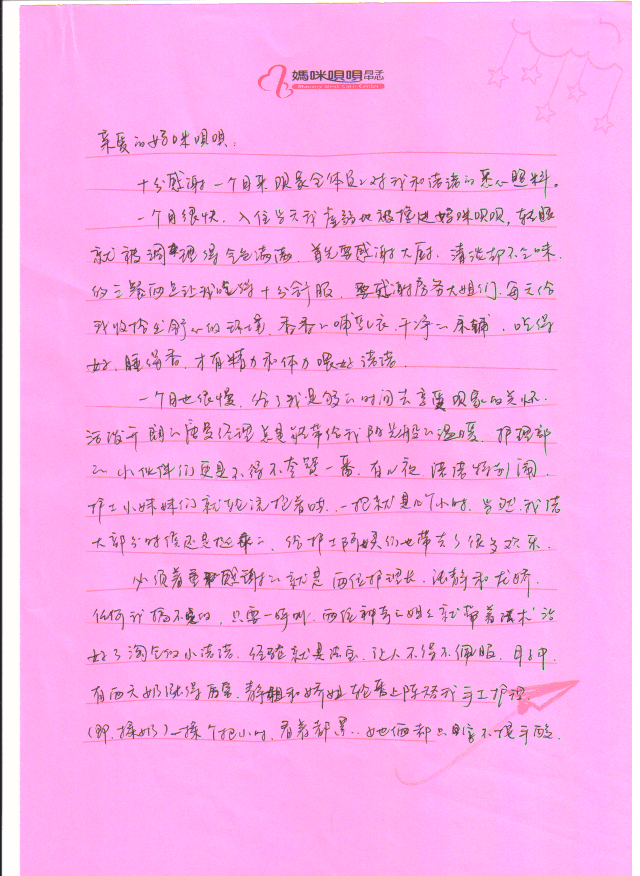 媽咪唄唄
亲爱的妈咪呗呗：
十分感谢一个月来呗家全体员工对我和诺诺的悉心照料。
一个月很快，入住当天我虚弱地被推进妈咪呗呗，转眼
就被调理得气色满满，首先要感谢大厨，清淡却不乏味
的三餐两点让我吃得十分舒服，要感谢房务大姐们，每天给
我收拾出舒心的环境，香香的哺乳衣，干净的床铺，吃得
好，睡得香，才有精力和体力喂好诺诺。
一个月也很慢，给了我足够的时间去享受呗家的关怀，
活泼开朗的 经理总是能带给我阳光般的温暖，护理部
的小伙伴们更是不得不夸赞一番，有几夜诺诺特别闹，
护士小妹妹们就轮流抱着哄，一抱就是几个小时，当然，我诺
大部分时候还是挺乖的，给护士阿姨们也带去了很多欢乐。
必须着重感谢的就是两位护理长，张静和龙娇，
任何我搞不定的，只要一呼叫，两位神奇的姐姐就带着法术治
好了淘气的小诺诺，经验就是法宝，让人不得不佩服，月子中，
有两天奶涨得厉害，静姐和娇姐轮番上阵给我手工护理，
（即，揉奶）一揉个把小时，看着都累，她俩却只字不提手酸，